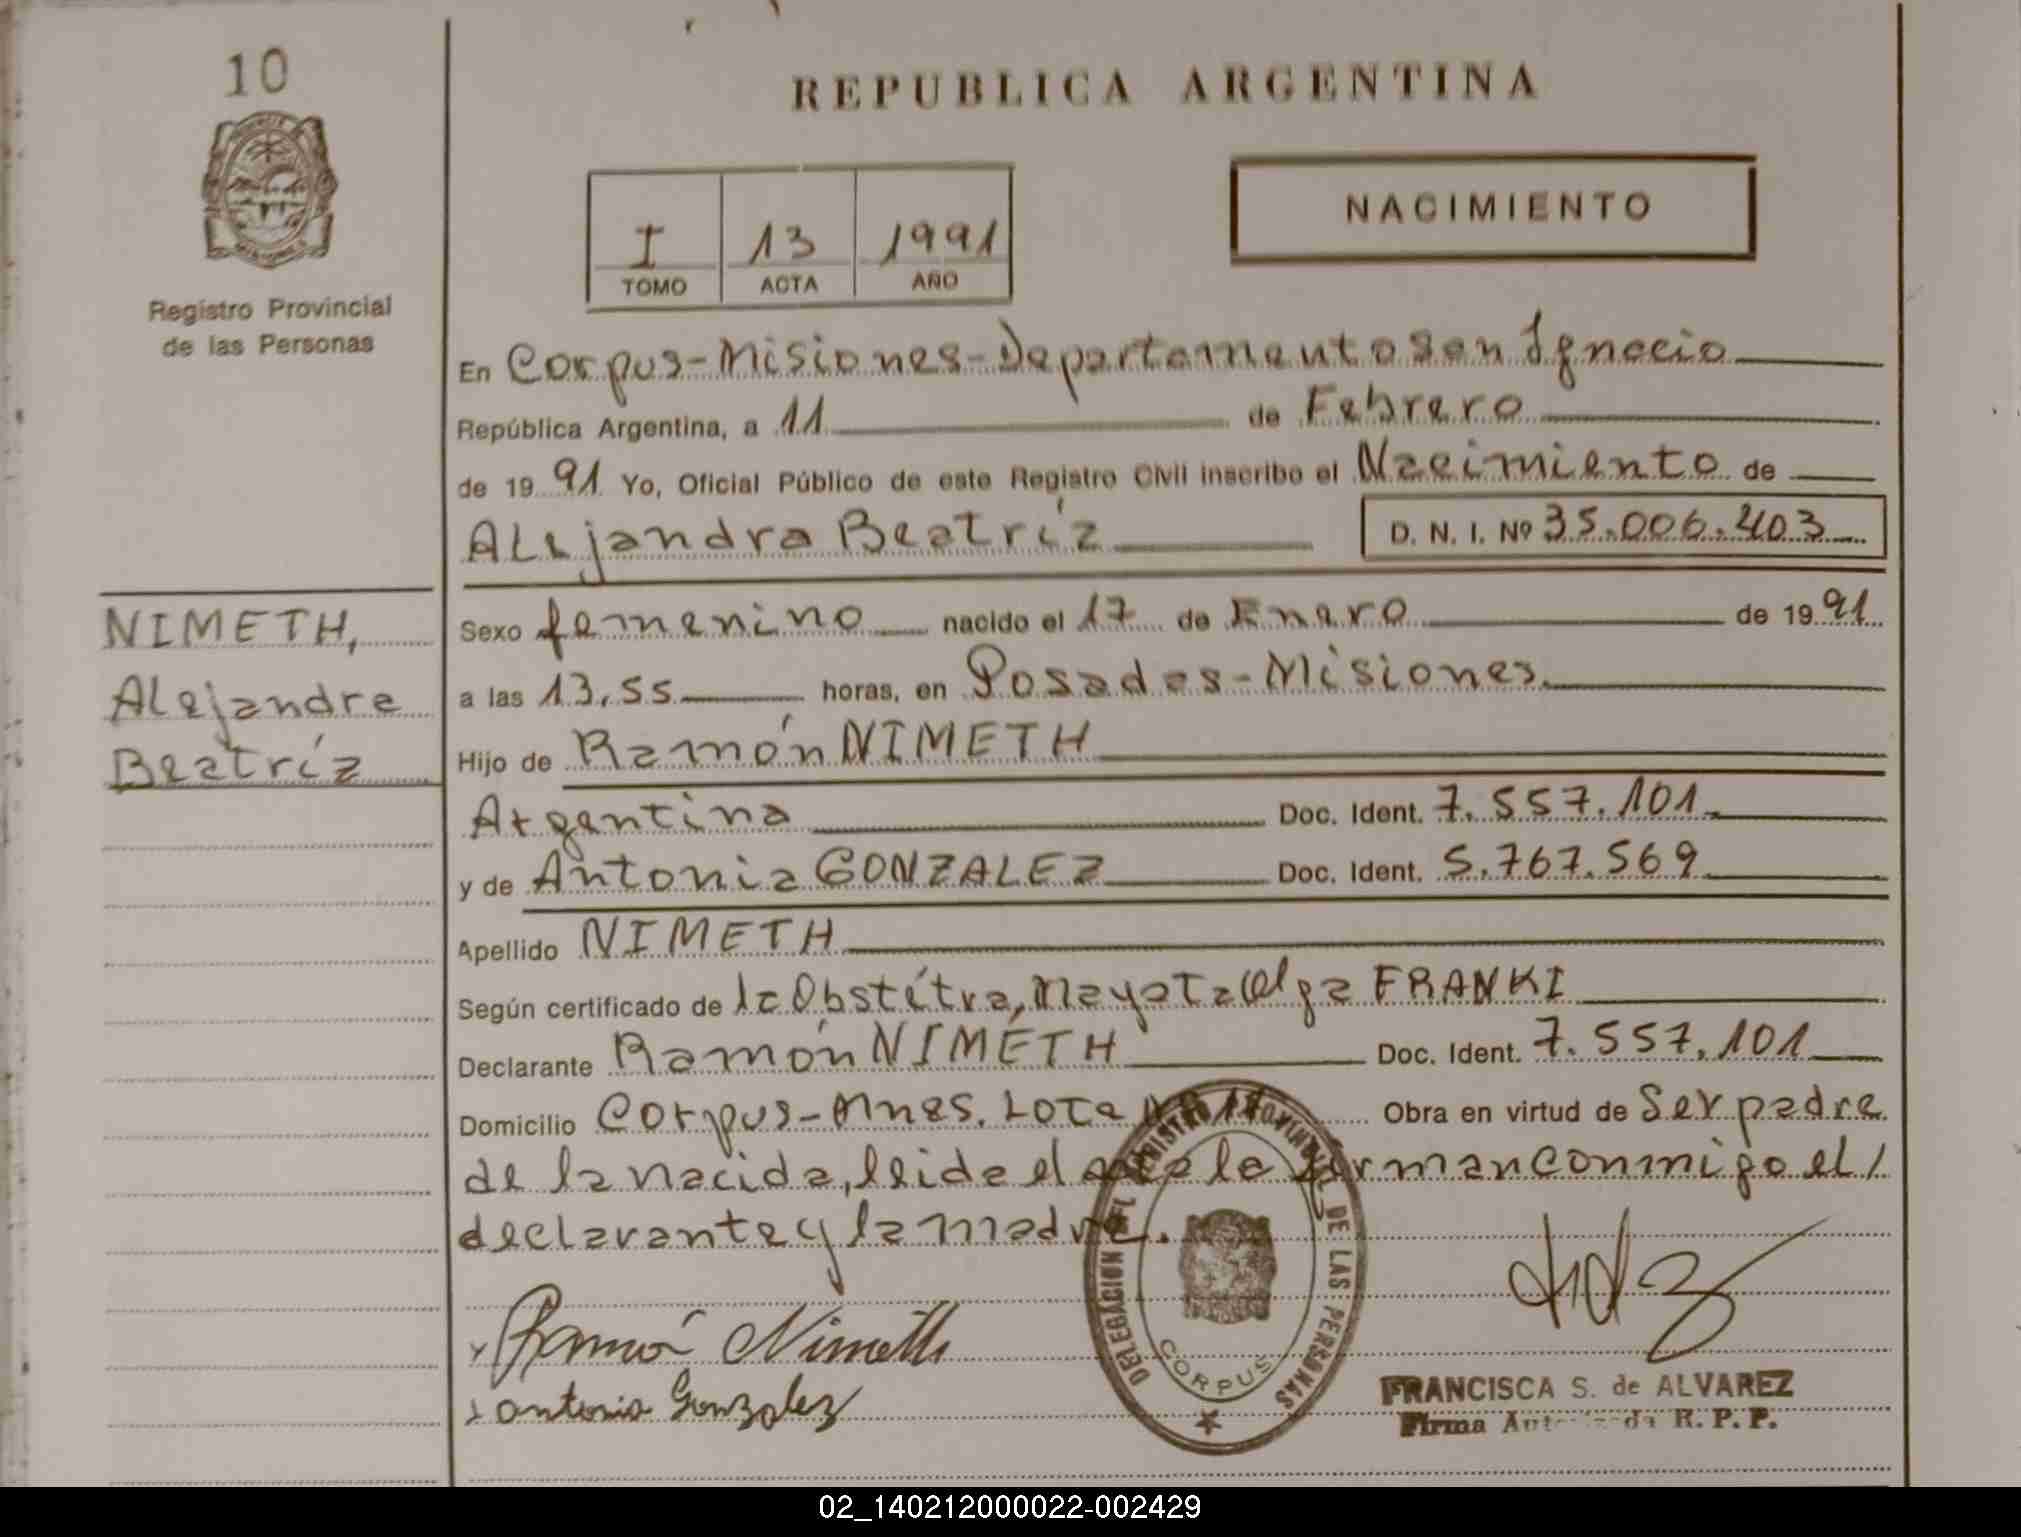 10
REPUBLICA ARGENTINA
NACIMIENTO
I 13 1991
TOMO ACTA AÑO
Registro Provincial
de las Personas
En Corpus-Misiones-Departamento San Ignacio
República Argentina, a 11 de Febrero
de 1991 Yo, Oficial Público de este Registro Civil inscribo el Nacimiento de
Alejandra Beatríz D. N. I. Nº 35.006.403
NIMETH,
Alejandra
Beatríz
Sexo femenino nacido el 17 de Enero de 1991
a las 13,55 horas, en Posadas-Misiones.
Hijo de Ramón NIMETH
Argentina Doc. Ident. 7.557.101
y de Antonia GONZALEZ Doc. Ident. 5.767.569
Apellido NIMETH
Según certificado de la Obstétra, Olga FRANKI
Declarante Ramón NIMETH Doc. Ident. 7.557.101
Domicilio Corpus-Mnes. Lote Obra en virtud de Ser padre
de la nacida, leida el acta la firman conmigo el/
declarante y la madre.
Ramón Nimeth
Antonia Gonzalez
DELEGACION DEL REGISTRO PROVINCIAL DE LAS PERSONAS
CORPUS
FRANCISCA S. de ALVAREZ
Firma Autorizada R. P. P.
02_140212000022-002429